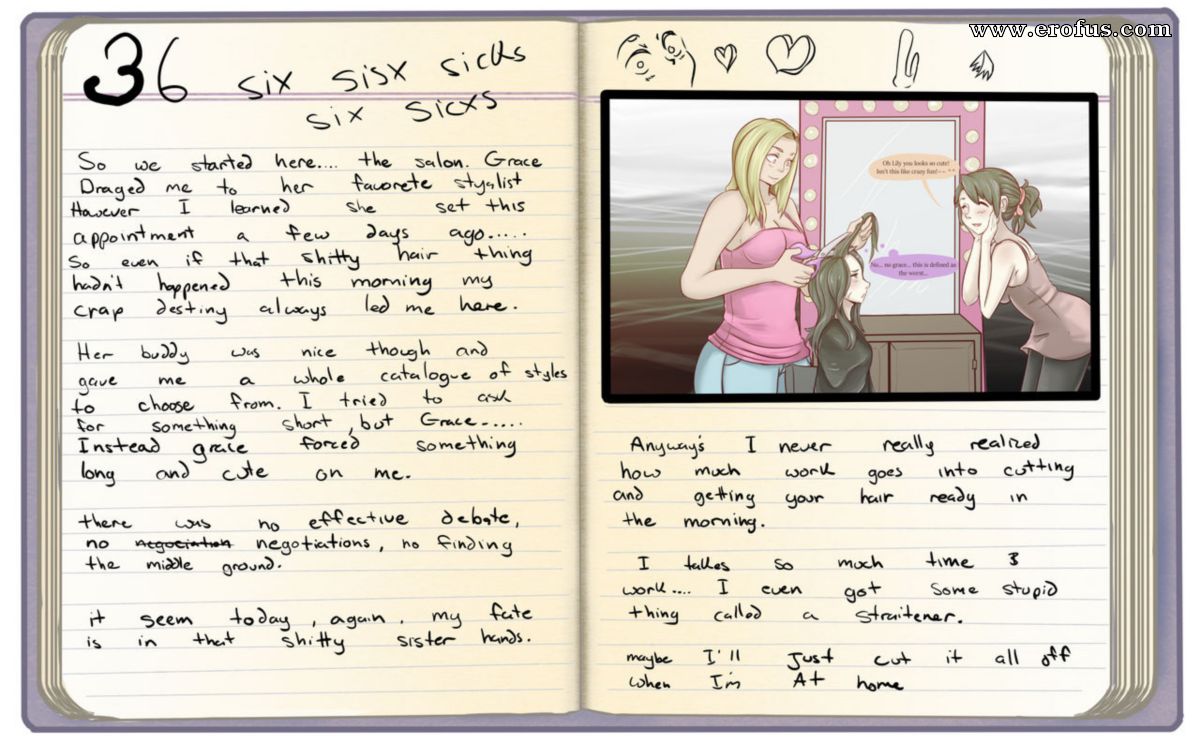 www.erofus.com
36 six sisx sicks
six sicxs
So we started here.... the salon. Grace
Draged me to her favorete stylalist
However I learned she set this
appointment a few days ago.....
So even if that shitty hair thing
hadn't happened this morning my
crap destiny always led me here.
Her buddy was nice though and
gave me a whole catalogue of styles
to choose from. I tried to ask
for something short, but Grace......
Instead grace forced something
long and cute on me.
there was no effective debate,
no negociation negotiations, no finding
the middle ground.
it seem today, again, my fate
is in that shitty sister hands.
Oh Lily you looks so cute!
Isn't this like crazy fun!~~ ^^
No... no grace... this is defined as
the worst...
Anyway's I never really realized
how much work goes into cutting
and getting your hair ready in
the morning.
I takes so much time &
work.... I even got some stupid
thing called a straitener.
maybe I'll Just cut it all off
when I'm At home